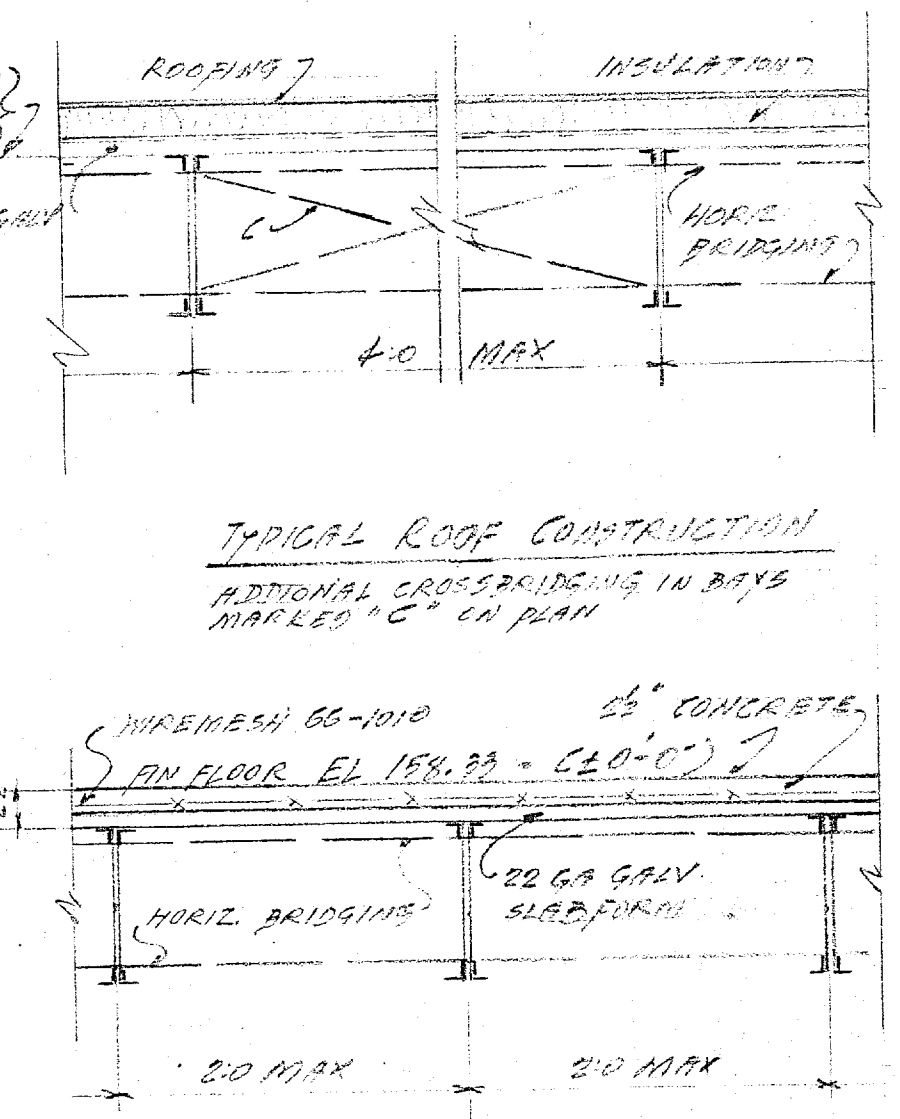 ROOFING
INSULATION
GALV
C
HORIZ
BRIDGING
4:0 MAX
TYPICAL ROOF CONSTRUCTION
ADITONAL CROSSBRIDGING IN BAYS
MARKED "C" ON PLAN
WIREMESH 66-1010
2½" CONCRETE
FIN FLOOR EL 158.33 - (±0'-0")
22 GA GALV.
SLABFORM
HORIZ. BRIDGING
2:0 MAX
2:0 MAX